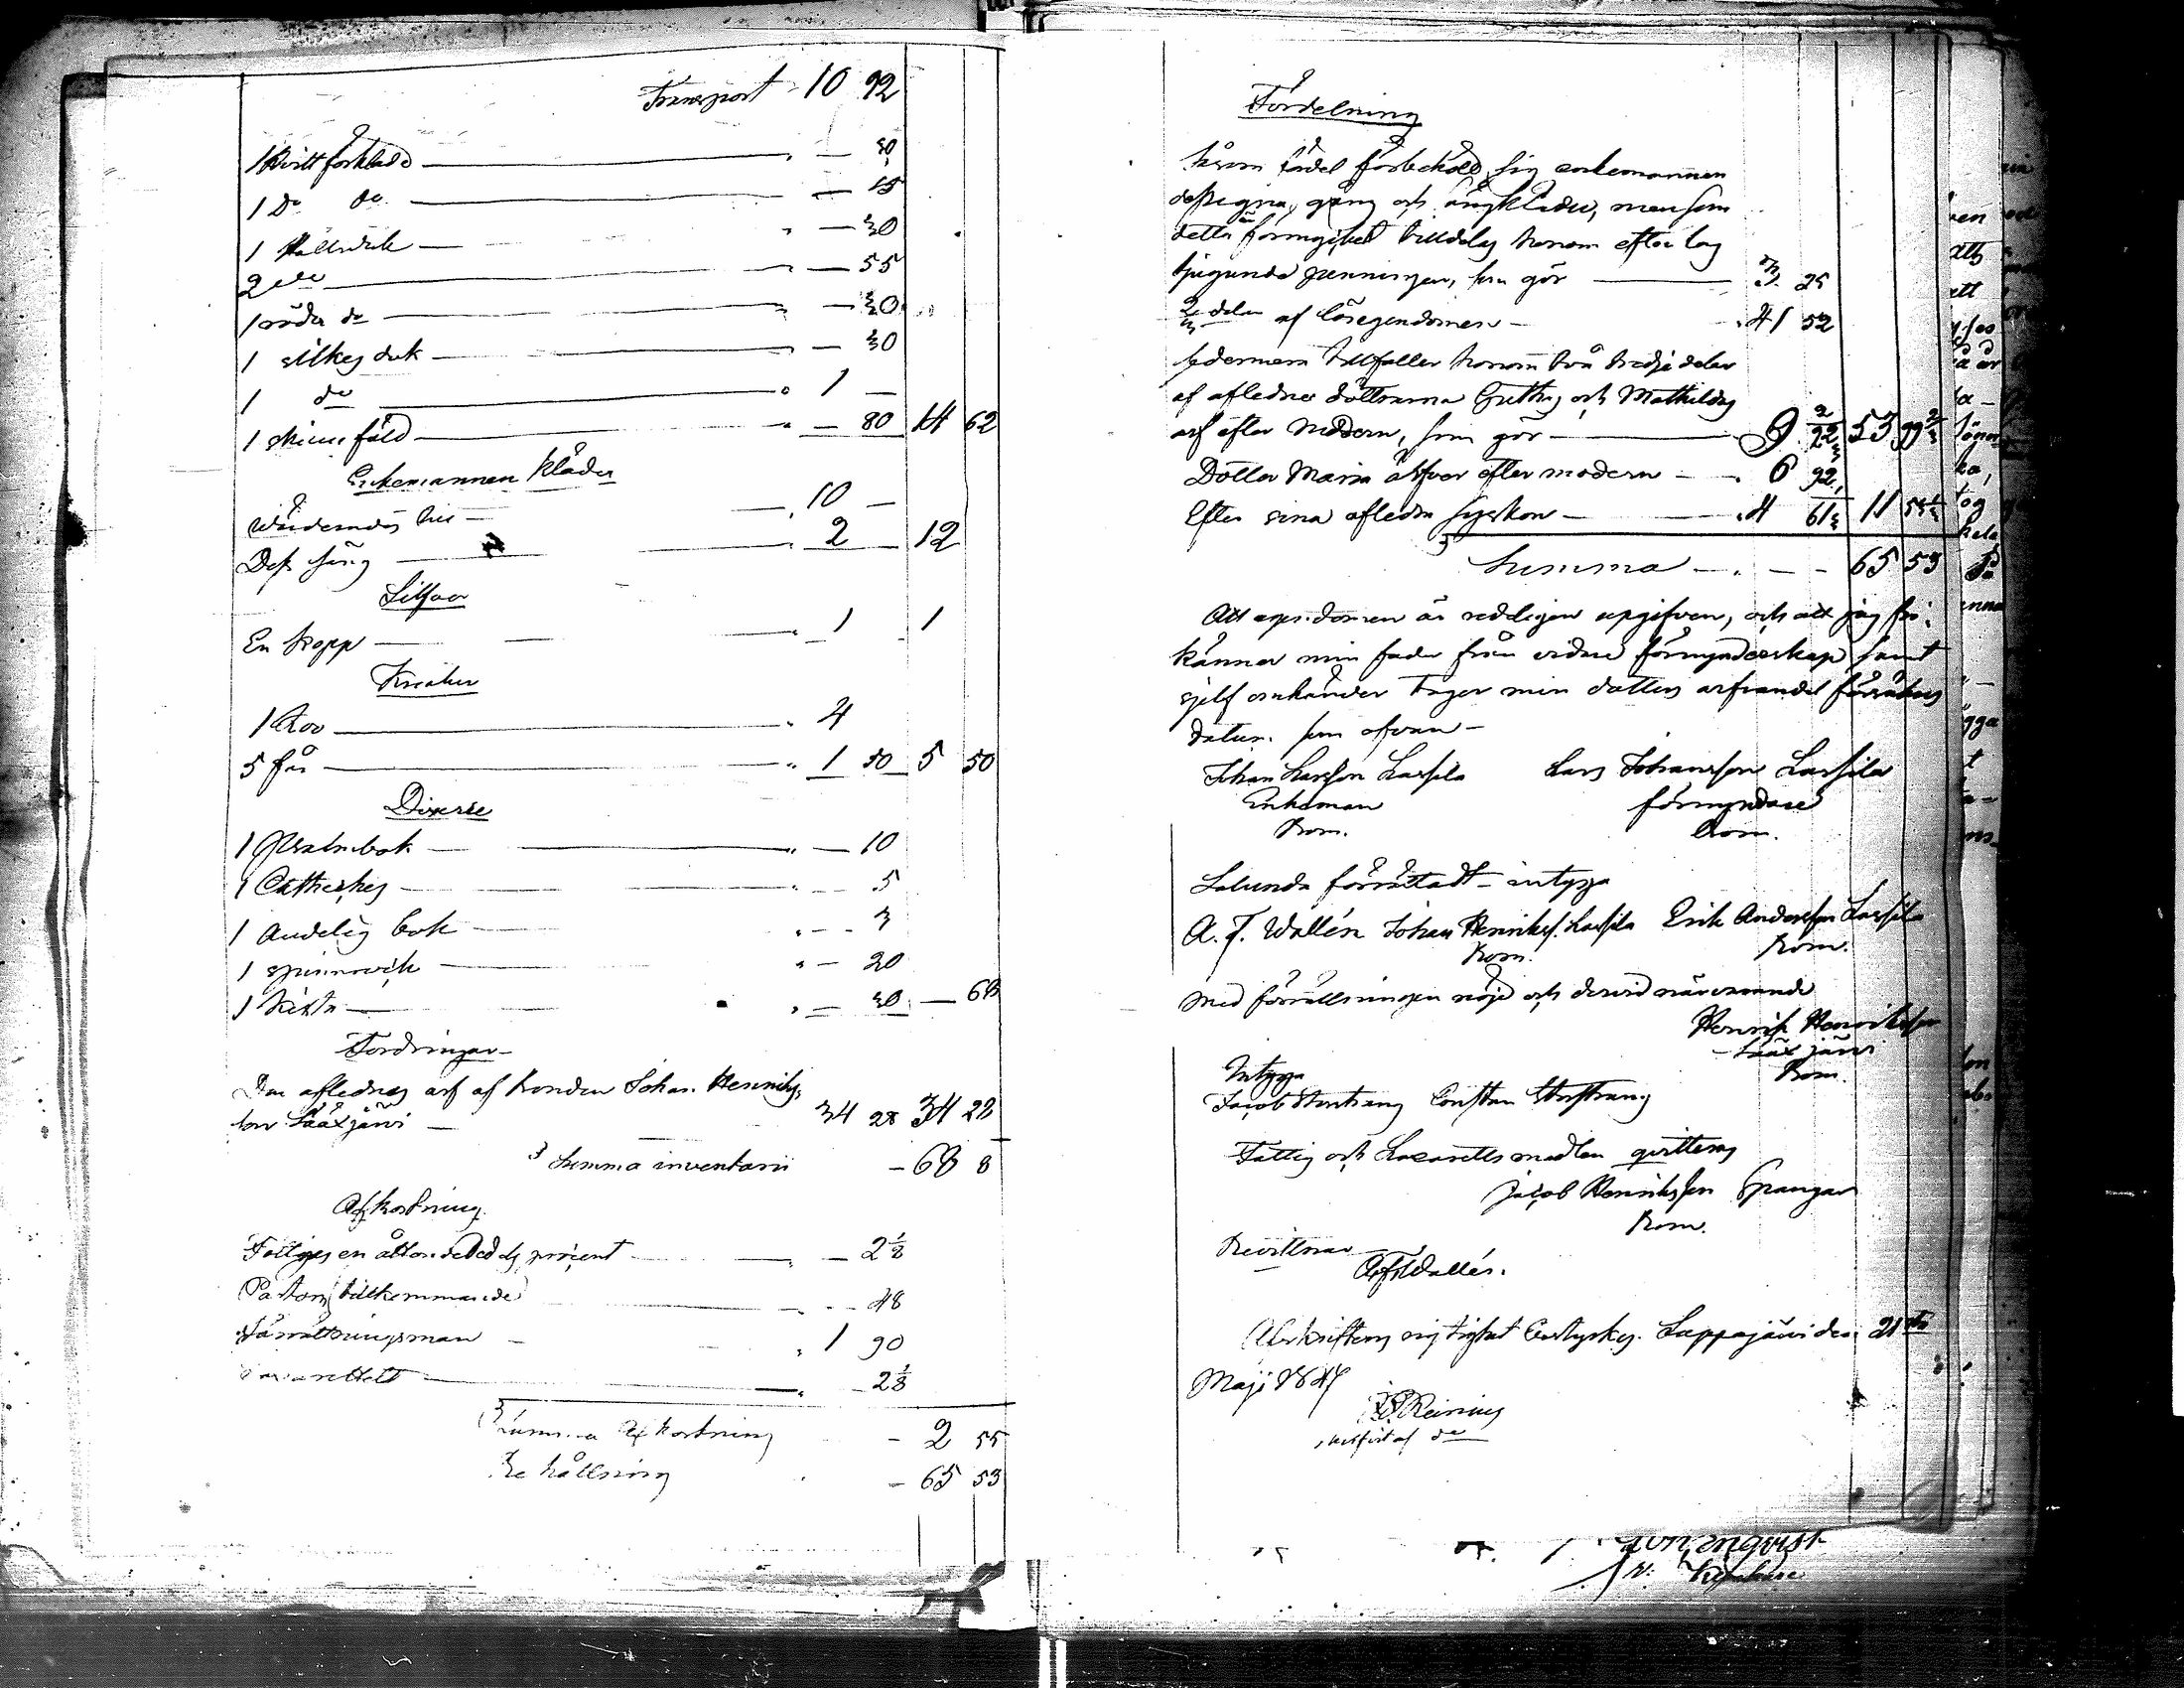 Transport 10 92
1 hvitt förkläde — 30
1 Do do — 15
1 — 30
2 do — 55
1 röda do — 30
1 silkes duk — 30
1 do 1 —
1 skinnfäld — 80 14 62
Enkemannens kläder
Wärderades till — 10 —
Dess säng — 2 — 12
Silfver
En kopp — 1 1
Kreatur
1 Koo — 4
5 får — 1 50 5 50
Diverse
1 Psalmbok — 10
1 Cathechες — 5
1 Andelig bok — 3
1 spinnrock — 20
1 kista — 30 — 68
Fordringar
Den aflednes arf af bonden Johan Henriks
son Sääxjärvi — 34 28 34 28
Summa inventarii — 68 8
Afkortning
Fattiges en åttondedels procent — 2 1/8
Pastors tillkommande — 48
Förrättningsman — 1 90
Lazarettet — 2 1/8
Summa Afkortning — 2 55
Behållning — 65 53
Fördelning
Såsom fördel förbehöll sig enkemannen
dess egna gång och sängkläder, men som
detta är tilldelas honom efter lag
tjugonde penningen, som gör — 3 25
2/3 delar af lösegendomen — 41 52
sedermera tillfaller honom två tredje delar
af aflednes döttrarna Grethas och Mathildas
arf efter Modern, som gör — 9 22 2/3 53 99 2/3
Dotter Maria ärfver efter modern — 6 92
Efter sina afledna syskon — 4 61 1/3 11 53 1/3
Summa — 65 53
Att egendomen är redeligen upgifven, och att jag fri
känner min fader från vidare förmynderskap samt
sjelf omhänder tager min dotters arfvandel försäkras
datum som ofvan —
Johan Larsson Lassila Lars Johansson Lassila
Enkeman förmyndare
bom. bom.
Sålunda förrättadt intyga
A. F. Wallén Johan Henriks. Lassila Erik Andersson Lassila
bom. bom.
Med förrättningen nöjd och dervid närvarande
Henrik Henriksson
Sääxjärvi
bom.
Intyga
Jacob Stenstrang Constan
Fattig och Lazaretts medlen qvitteras
Jacob Henriksson Spangar
bom.
Qvitterar
A. F. Wallén.
Afskriftens rigtighet bestyrkes. Lappajärvi den 21sta
Maji 1847
Reinius